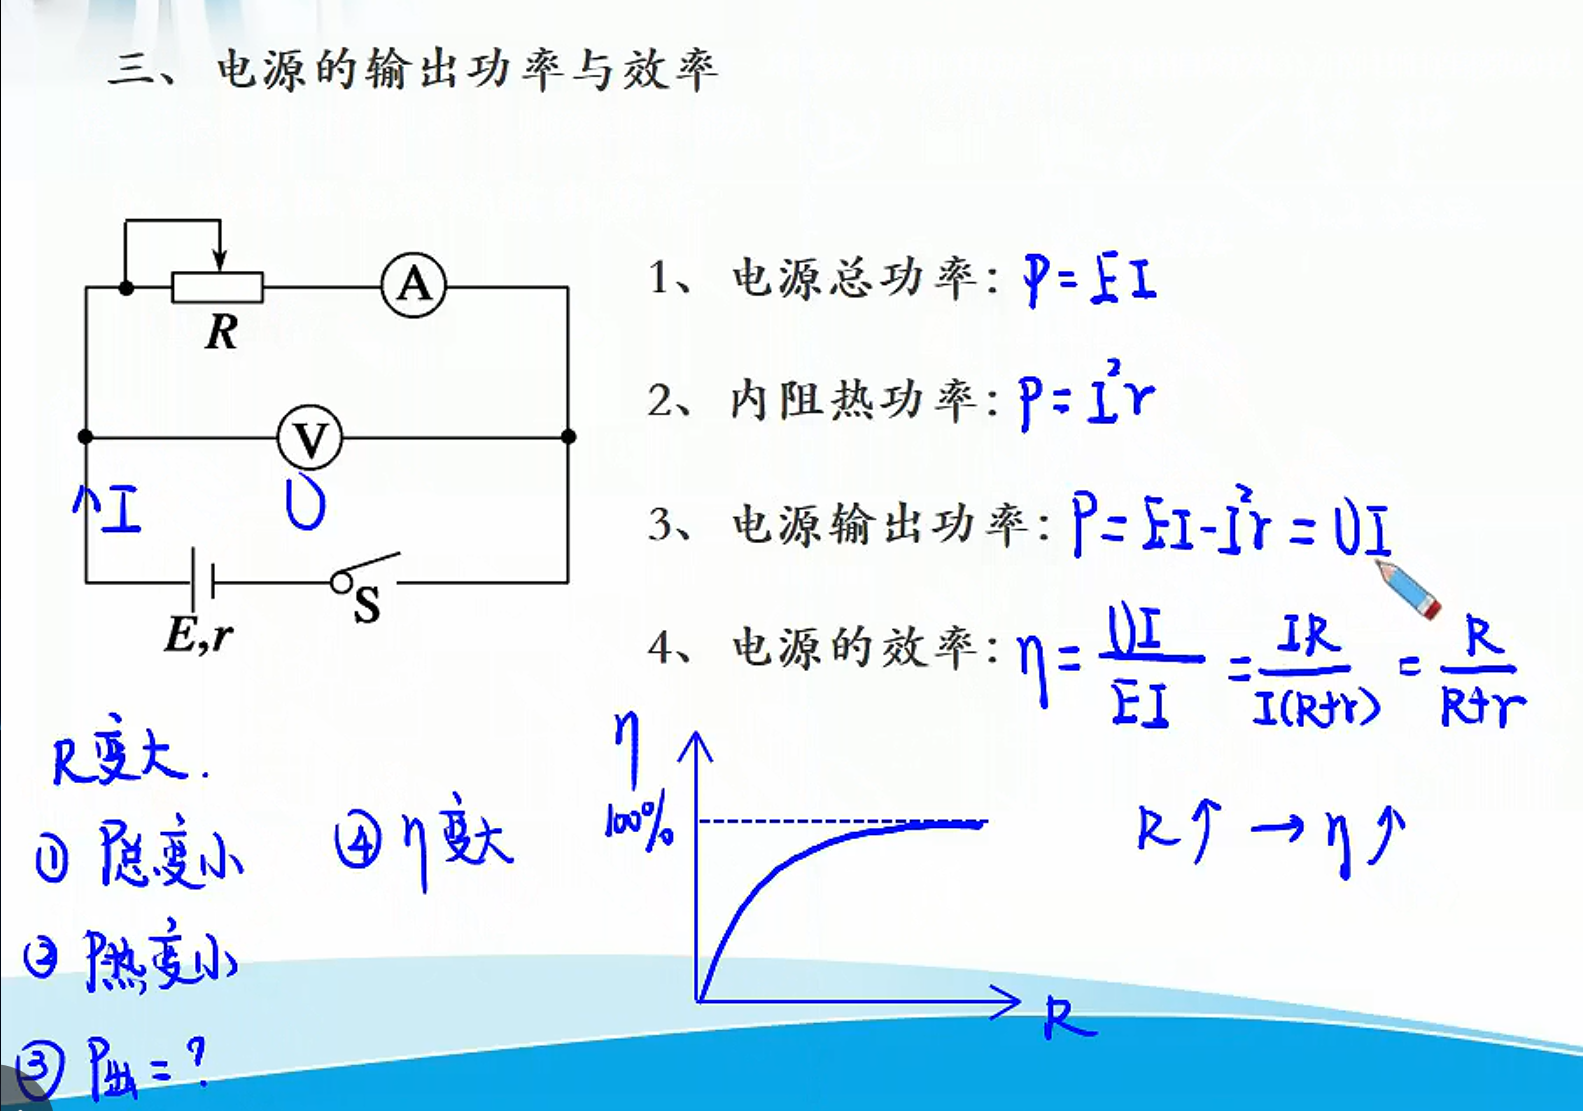 三、电源的输出功率与效率
R
A
V
↑I
U
E,r
S
1、电源总功率: P=EI
2、内阻热功率: P=I²r
3、电源输出功率: P=EI-I²r=UI
4、电源的效率: η=UI/EI=IR/I(R+r)=R/R+r
R变大.
① P总变小
② P热变小
③ P出=?
④ η变大
η
100%
R
R↑→η↑